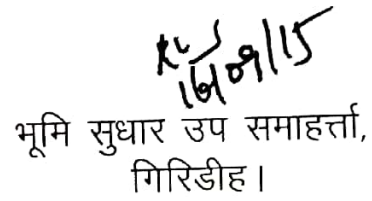 16/09/15
भूमि सुधार उप समाहर्त्ता,
गिरिडीह।